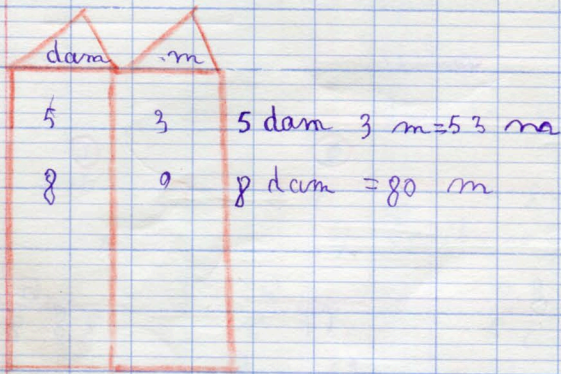 dam m
5 3 5 dam 3 m=53 m
8 0 8 dam =80 m